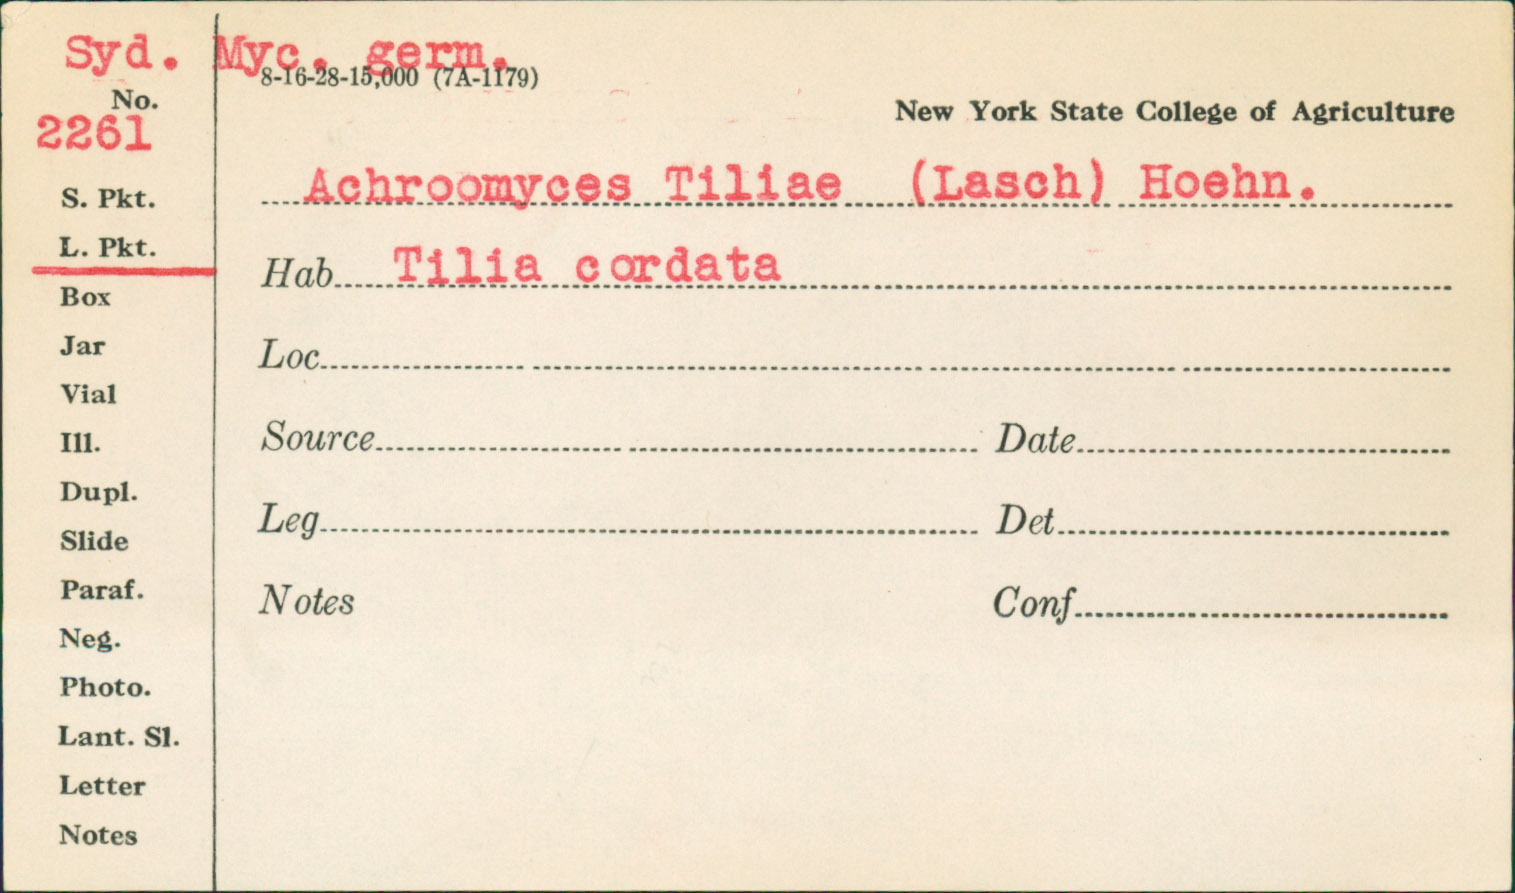 Syd. Myc. germ.
8-16-28-15,000 (7A-1179)
No.
2261
New York State College of Agriculture
Achroomyces Tiliae (Lasch) Hoehn.
S. Pkt.
L. Pkt.
Hab Tilia cordata
Box
Jar
Loc
Vial
Ill.
Source Date
Dupl.
Slide
Leg Det
Paraf.
Notes Conf
Neg.
Photo.
Lant. Sl.
Letter
Notes